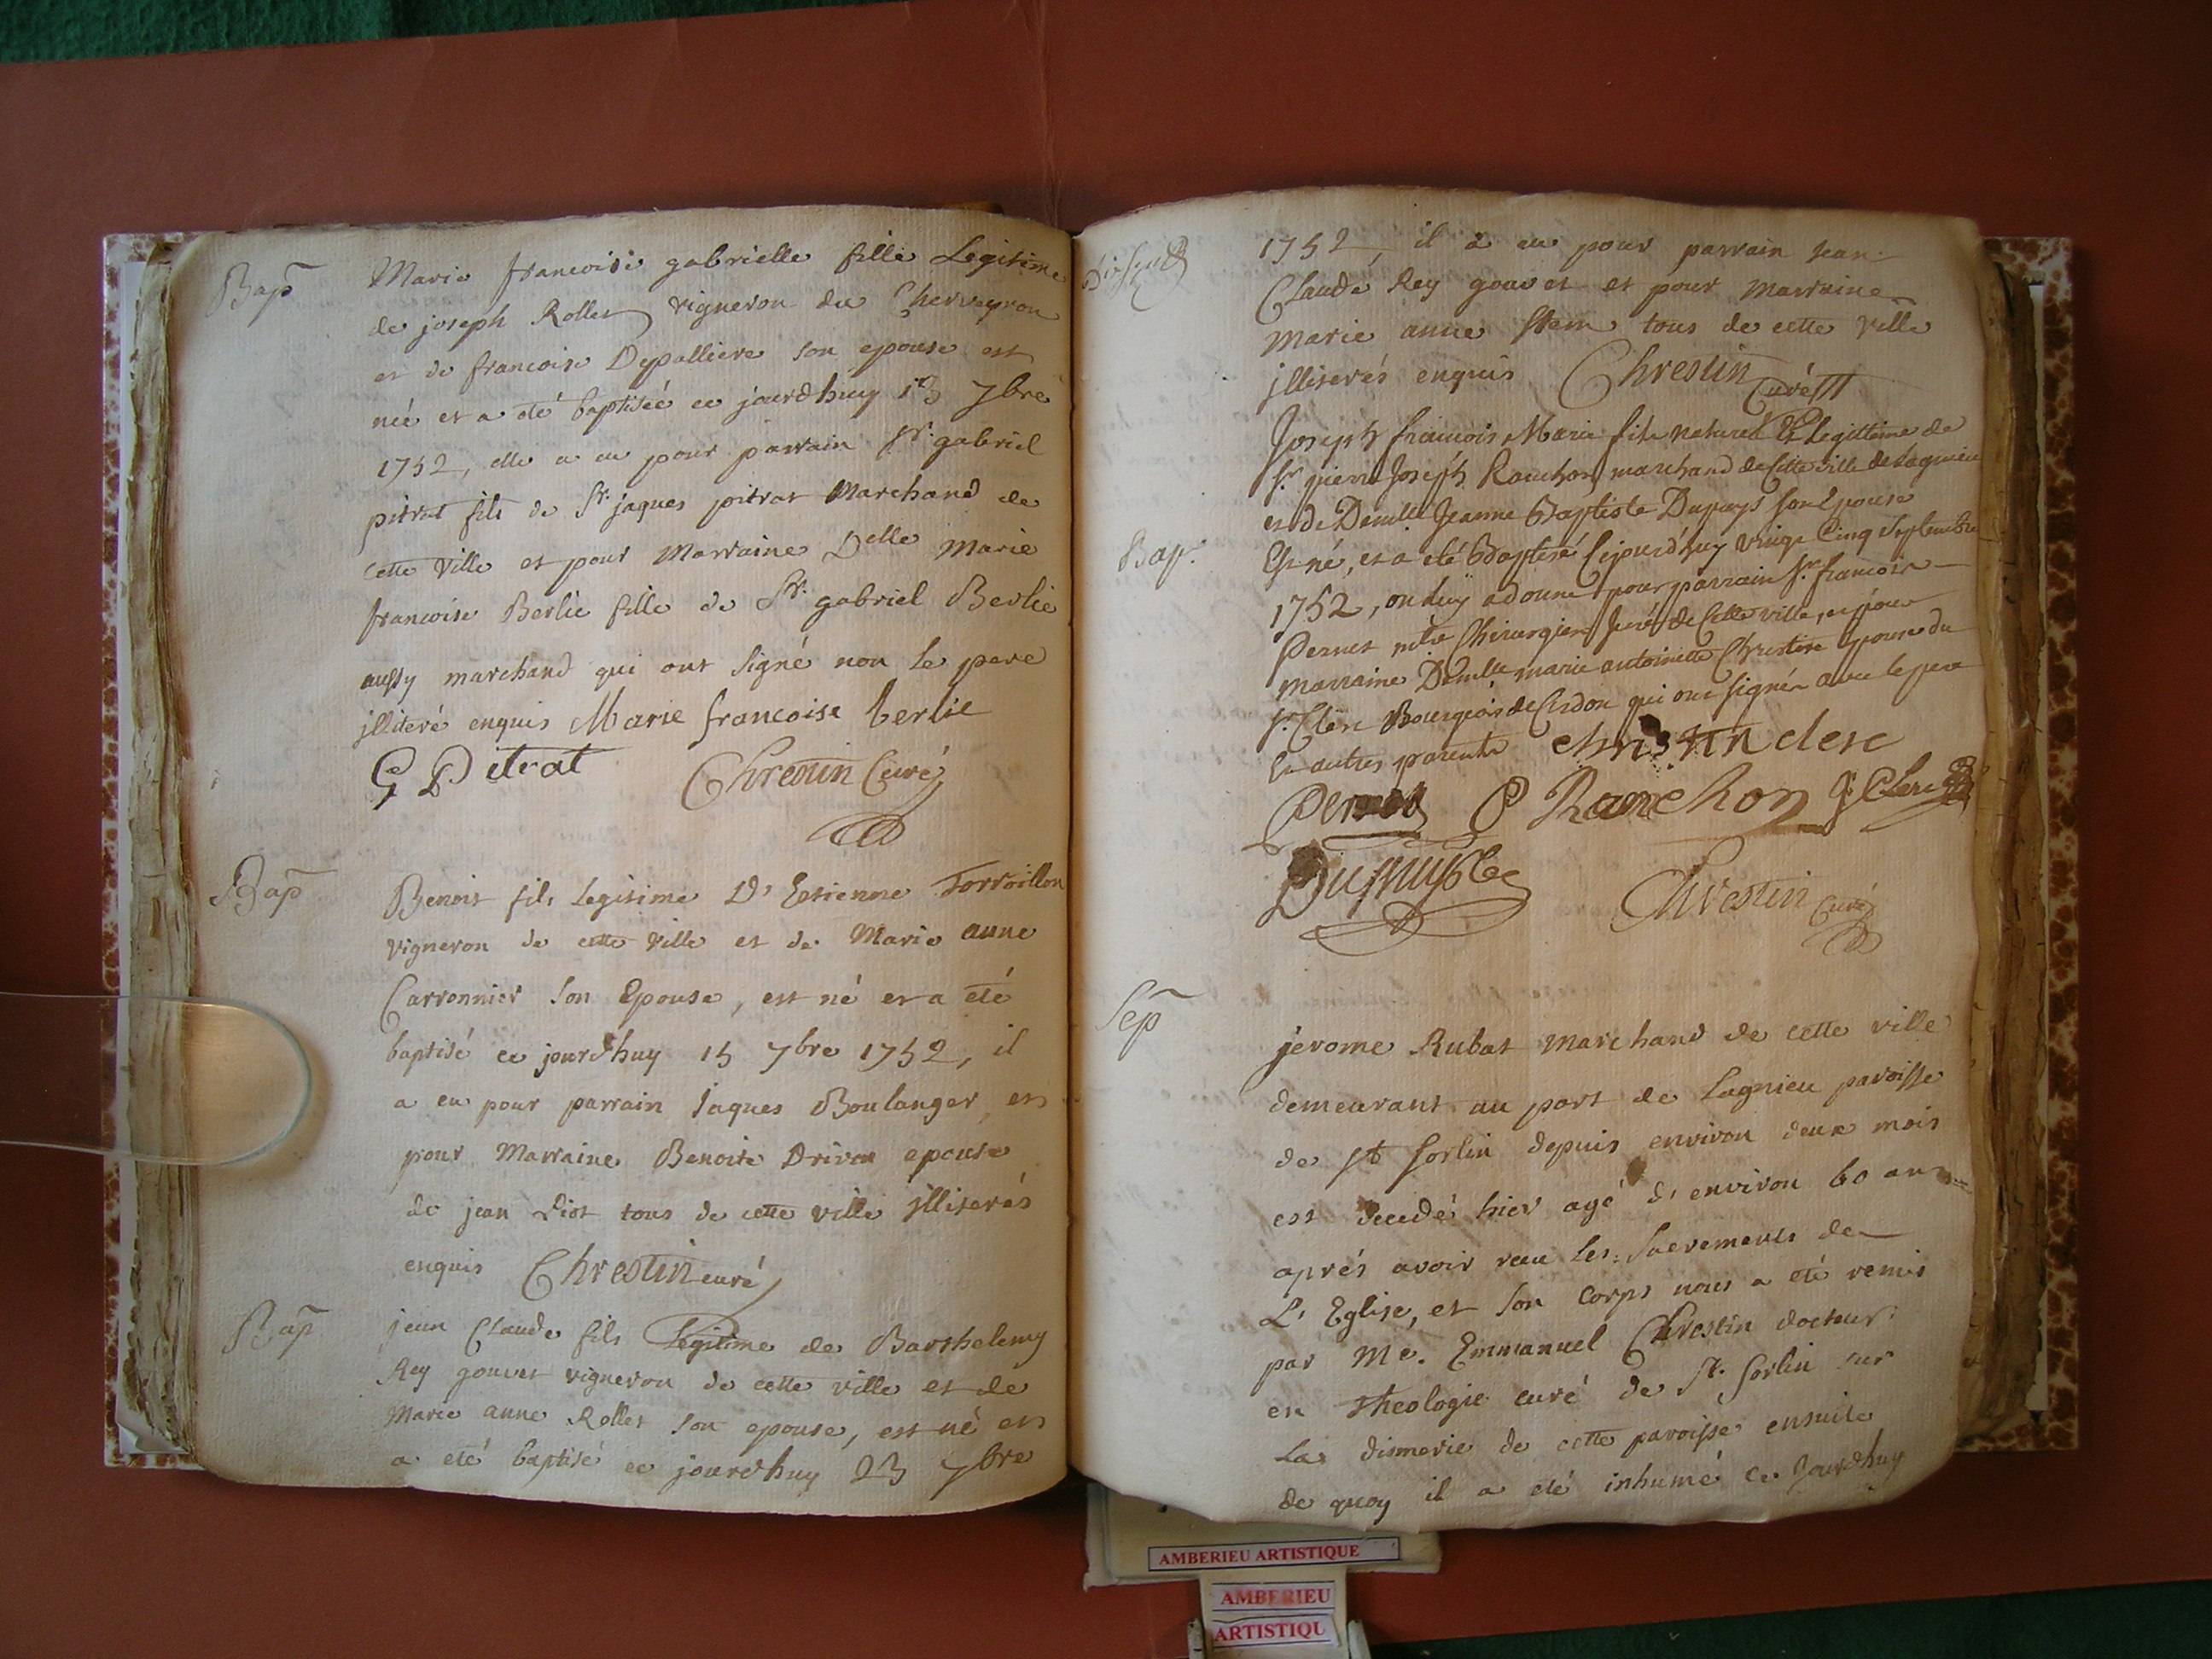 Bap
Marie francoise gabrielle fille Legitime
de joseph Rollet vigneron du Cherveyron
et de francoise Depalliere son epouse est
née et a eté baptisée ce jourdhuy 13 7bre
1752, elle a eu pour parrain Sr. gabriel
pitrat fils de Sr. jaques pitrat Marchand de
cette Ville et pour Marraine Delle Marie
francoise Berlie fille de Sr. gabriel Berlie
aussy marchand qui ont signé non le pere
jlliteré enquis Marie francoise berlie
G Pitrat Chrestin Curé
Bap
Benoit fils Legitime D' Estienne Torroillon
vigneron de cette Ville et de Marie anne
Carronnier son Epouse, est né et a eté
baptisé ce jourdhuy 15 7bre 1752, il
a eu pour parrain Jaques Boulanger et
pour Marraine Benoite Drivon epouse
de jean Diot tous de cette ville jlliterés
enquis Chrestin curé
Bap
jean Claude fils Legitime de Barthelemy
Rey gouvet vigneron de cette ville et de
Marie anne Rollet son epouse, est né et
a eté baptisé ce jourdhuy 23 7bre
1752, il a eu pour parrain Jean
Claude Rey gouvet et pour Marraine
Marie anne tous de cette Ville
jlliterés enquis Chrestin Curé
Bap.
Joseph francois Marie fils naturel Et Legittime de
Sr. pierre Joseph Ranchon marchand de Cette ville de Lagnieu
et de Demlle Jeanne Baptiste Dupuys son Epouse
Est né, et a eté Baptisé Cejourd'huy vingt Cinq Septembre
1752, on luy a donné pour parrain Sr. francois
Pernet mtre Chirurgien juré de Cette ville, et pour
marraine Demlle marie antoinette Chrestin Epouse du
Sr. Clerc Bourgeois de Cerdon qui ont signé avec le pere
Et autres parents christin clerc
Pernet P Ranchon J. Clerc
Chrestin Curé
Sep
jerome Rubat Marchand de cette ville
demeurant au port de Lagnieu paroisse
de St Sorlin depuis environ deux mois
est decedé hier agé d' environ 60 ans
aprés avoir receu les sacrements de
L' Eglise, et son Corps nous a eté remis
par Me. Emmanuel Chrestin docteur
en theologie curé de St. Sorlin sur
la dismerie de cette paroisse ensuite
de quoy il a eté inhumé ce Jourdhuy
AMBERIEU ARTISTIQUE
AMBERIEU
ARTISTIQU